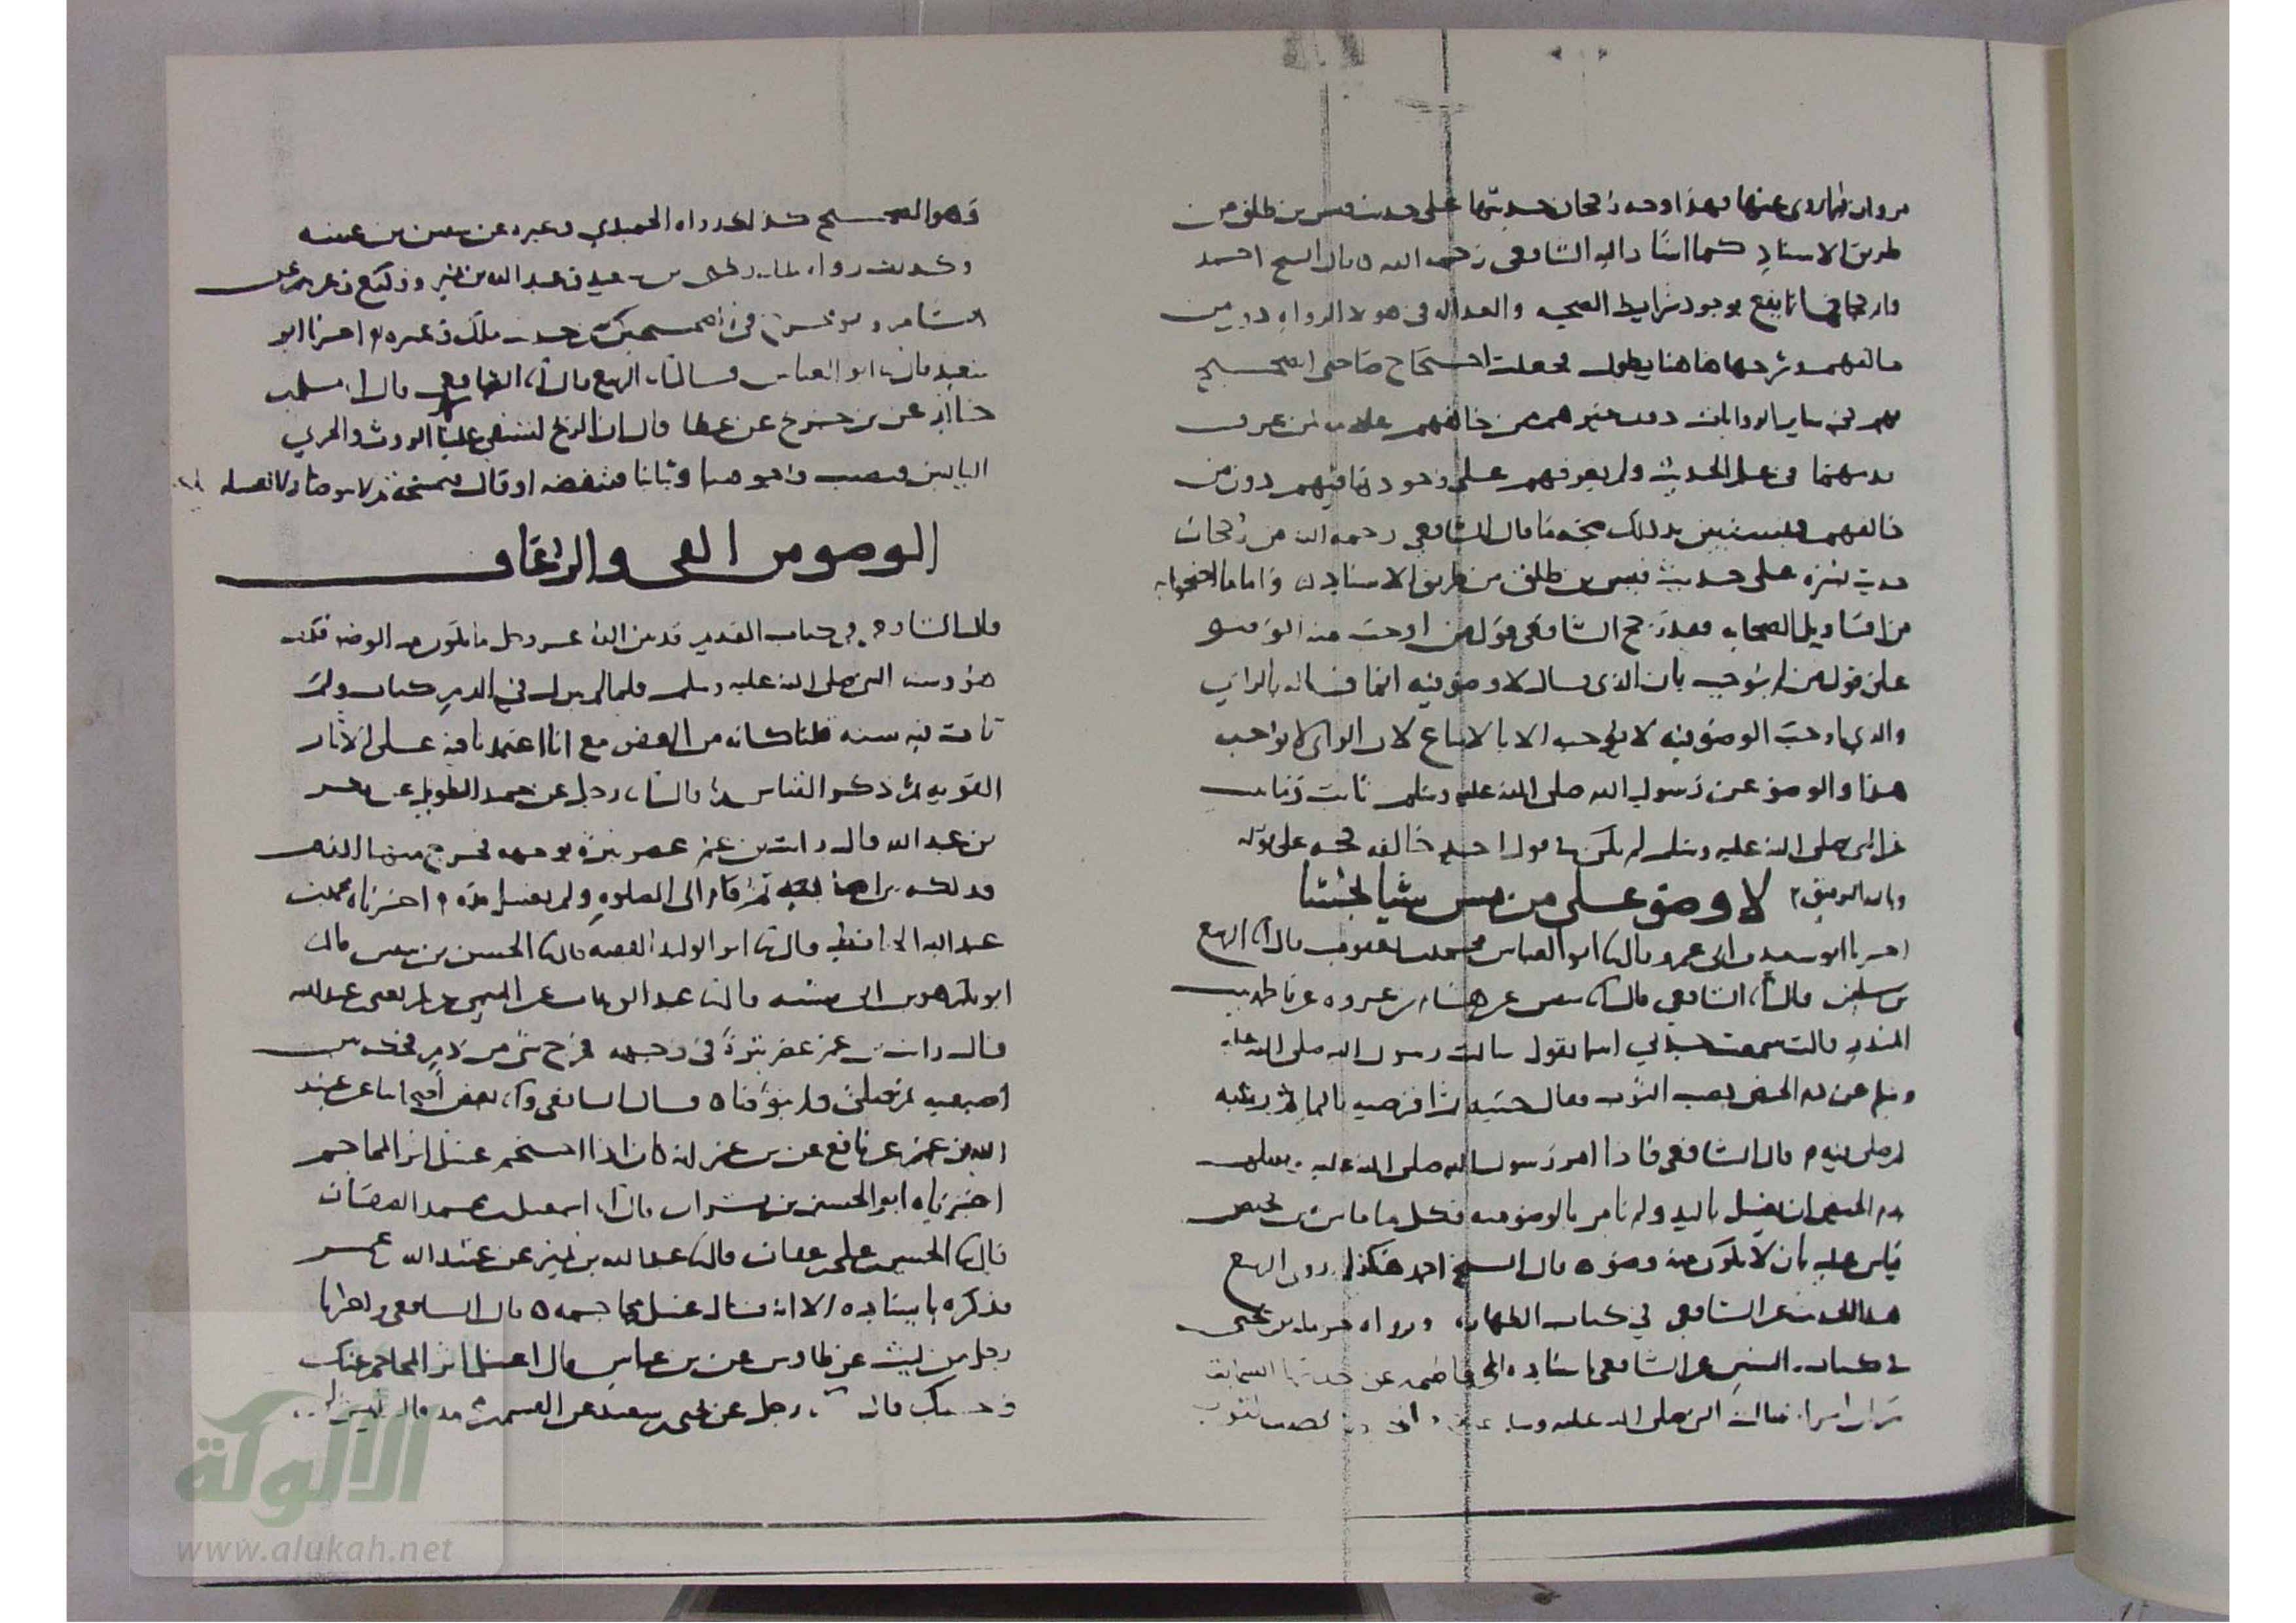 طريق الاسناد كما اشار اليه الشافعي رحمه الله قال الشيخ احمد
بوجود شرايط الصحه والعداله في هولا الرواه دون من
خالفهم وشرحها هاهنا يطول فجعلت احتجاج صاحبي الصحيح
بهم في ساير الروايات دون غيرهم ممن خالفهم علامه لمن عرف
في علم الحديث ولم يعرفهم على وجود دون من
خالفهم فيستبين بذلك صحه ما قال الشافعي رحمه الله من رجحان
حديث بسره على حديث قيس بن طلق من طريق الاسناد
من اقاويل الصحابه فقد رجح الشافعي قول من اوجب منه الوضو
على قول من لم يوجب بان الذي قال لا وضو فيه انما قاله بالراي
والذي اوجب الوضو فيه لا يوجبه الا بالاتباع لان الراي لا يوجب
هذا والوضو عن رسول الله صلى الله عليه وسلم ثابت وما ثبت
عن النبي صلى الله عليه وسلم لم يكن في قول احد خالفه حجه على قوله
وبالله التوفيق
لا وضو على من مس شيا نجسا
اخبرنا ابو سعيد بن ابي عمرو قال ابو العباس محمد بن يعقوب قال الربيع
بن سليمن قال الشافعي قال سفين عن هشام بن عروه عن فاطمه بنت
المنذر قالت سمعت جدتي اسما تقول سالت رسول الله صلى الله عليه
وسلم عن دم الحيض يصيب الثوب فقال حتيه ثم اقرصيه بالما ثم رشيه
ثم صلي فيه قال الشافعي فاذا امر رسول الله صلى الله عليه وسلم
بدم الحيض ان يغسل باليد ولم يامر بالوضو منه فكل ما ماس من نجس
قياس عليه بان لا يكون منه وضو قال الشيخ احمد هكذا روى الربيع
هذا الحديث عن الشافعي في كتاب الطهاره ورواه حرمله بن يحيى
في كتاب السنن عن الشافعي باسناده الى فاطمه عن جدتها اسما
ان امراه سالت النبي صلى الله عليه وسلم عن دم يصيب الثوب
وهو الصحيح كذلك رواه الحميدي وغيره عن سفين بن عيينه
وكذلك رواه يحيى بن سعيد وعبد الله بن نمير ووكيع وغيرهم عن
هشام وهو مخرج في الصحيحين من حديث ملك وغيره اخبرنا ابو
سعيد قال ابو العباس قال الربيع قال الشافعي قال مسلم
عن بن جريج عن عطا قال ان الريح لتسفي علينا الروث والخرء
اليابس فيصيب وجوهنا وثيابنا فننفضه او قال فنمسحه ثم لا نتوضا ولا نغسله
الوضو من القي والرعاف
قال الشافعي في كتاب القديم قد بين الله عز وجل ما يكون منه الوضو
وسنه النبي صلى الله عليه وسلم فلما لم ينزل في الدم كتاب ولم
تات فيه سنه قلنا كانه من العفو مع انا اعتمدنا فيه على الاثار
القويه ثم ذكر القياس قال رجل عن حميد الطويل عن بكر
بن عبد الله قال رايت بن عمر عصر بثره بوجهه فخرج منها الدم
فدلكه بين اصبعيه ثم قام الى الصلوه ولم يغسل يده اخبرناه محمد بن
عبد الله الحافظ قال ابو الوليد الفقيه قال الحسن بن سفين قال
ابو بكر هو بن ابي شيبه قال عبد الوهاب عن التيمي عن بكر يعني بن عبد الله
قال رايت بن عمر عصر بثره في وجهه فخرج شي من دم فحكه بين
اصبعيه ثم صلى ولم يتوضا قال الشافعي بعض اصحابنا عن عبيد
الله بن عمر عن نافع عن بن عمر انه كان اذا احتجم غسل اثر المحاجم
اخبرناه ابو الحسين بن بشران قال اسمعيل بن محمد الصفار
قال الحسن بن علي بن عفان قال عبد الله بن نمير عن عبيد الله بن عمر
فذكره باسناده الا انه قال غسل محاجمه قال الشافعي واخبرنا
رجل عن ليث عن طاوس عن بن عباس قال اغسل اثر المحاجم عنك
وحسبك قال رجل عن يحيى بن سعيد عن القسم بن محمد قال ليس
الألوكة
www.alukah.net